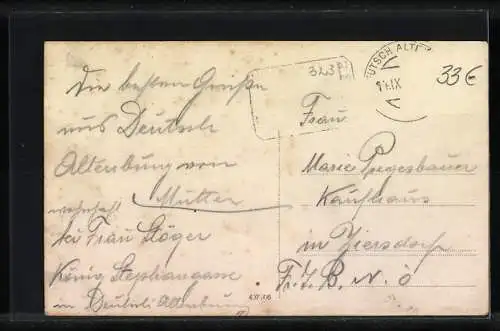 Die besten Grüße
aus Deutsch
Altenburg von
Mutter
wohnhaft
bei Frau Stöger
König Stephangasse
in Deutsch Altenburg
323
DEUTSCH ALT
IX
33 €
Frau
Marie
Kaufhaus
in Ziersdorf
F. J. B. N. Ö